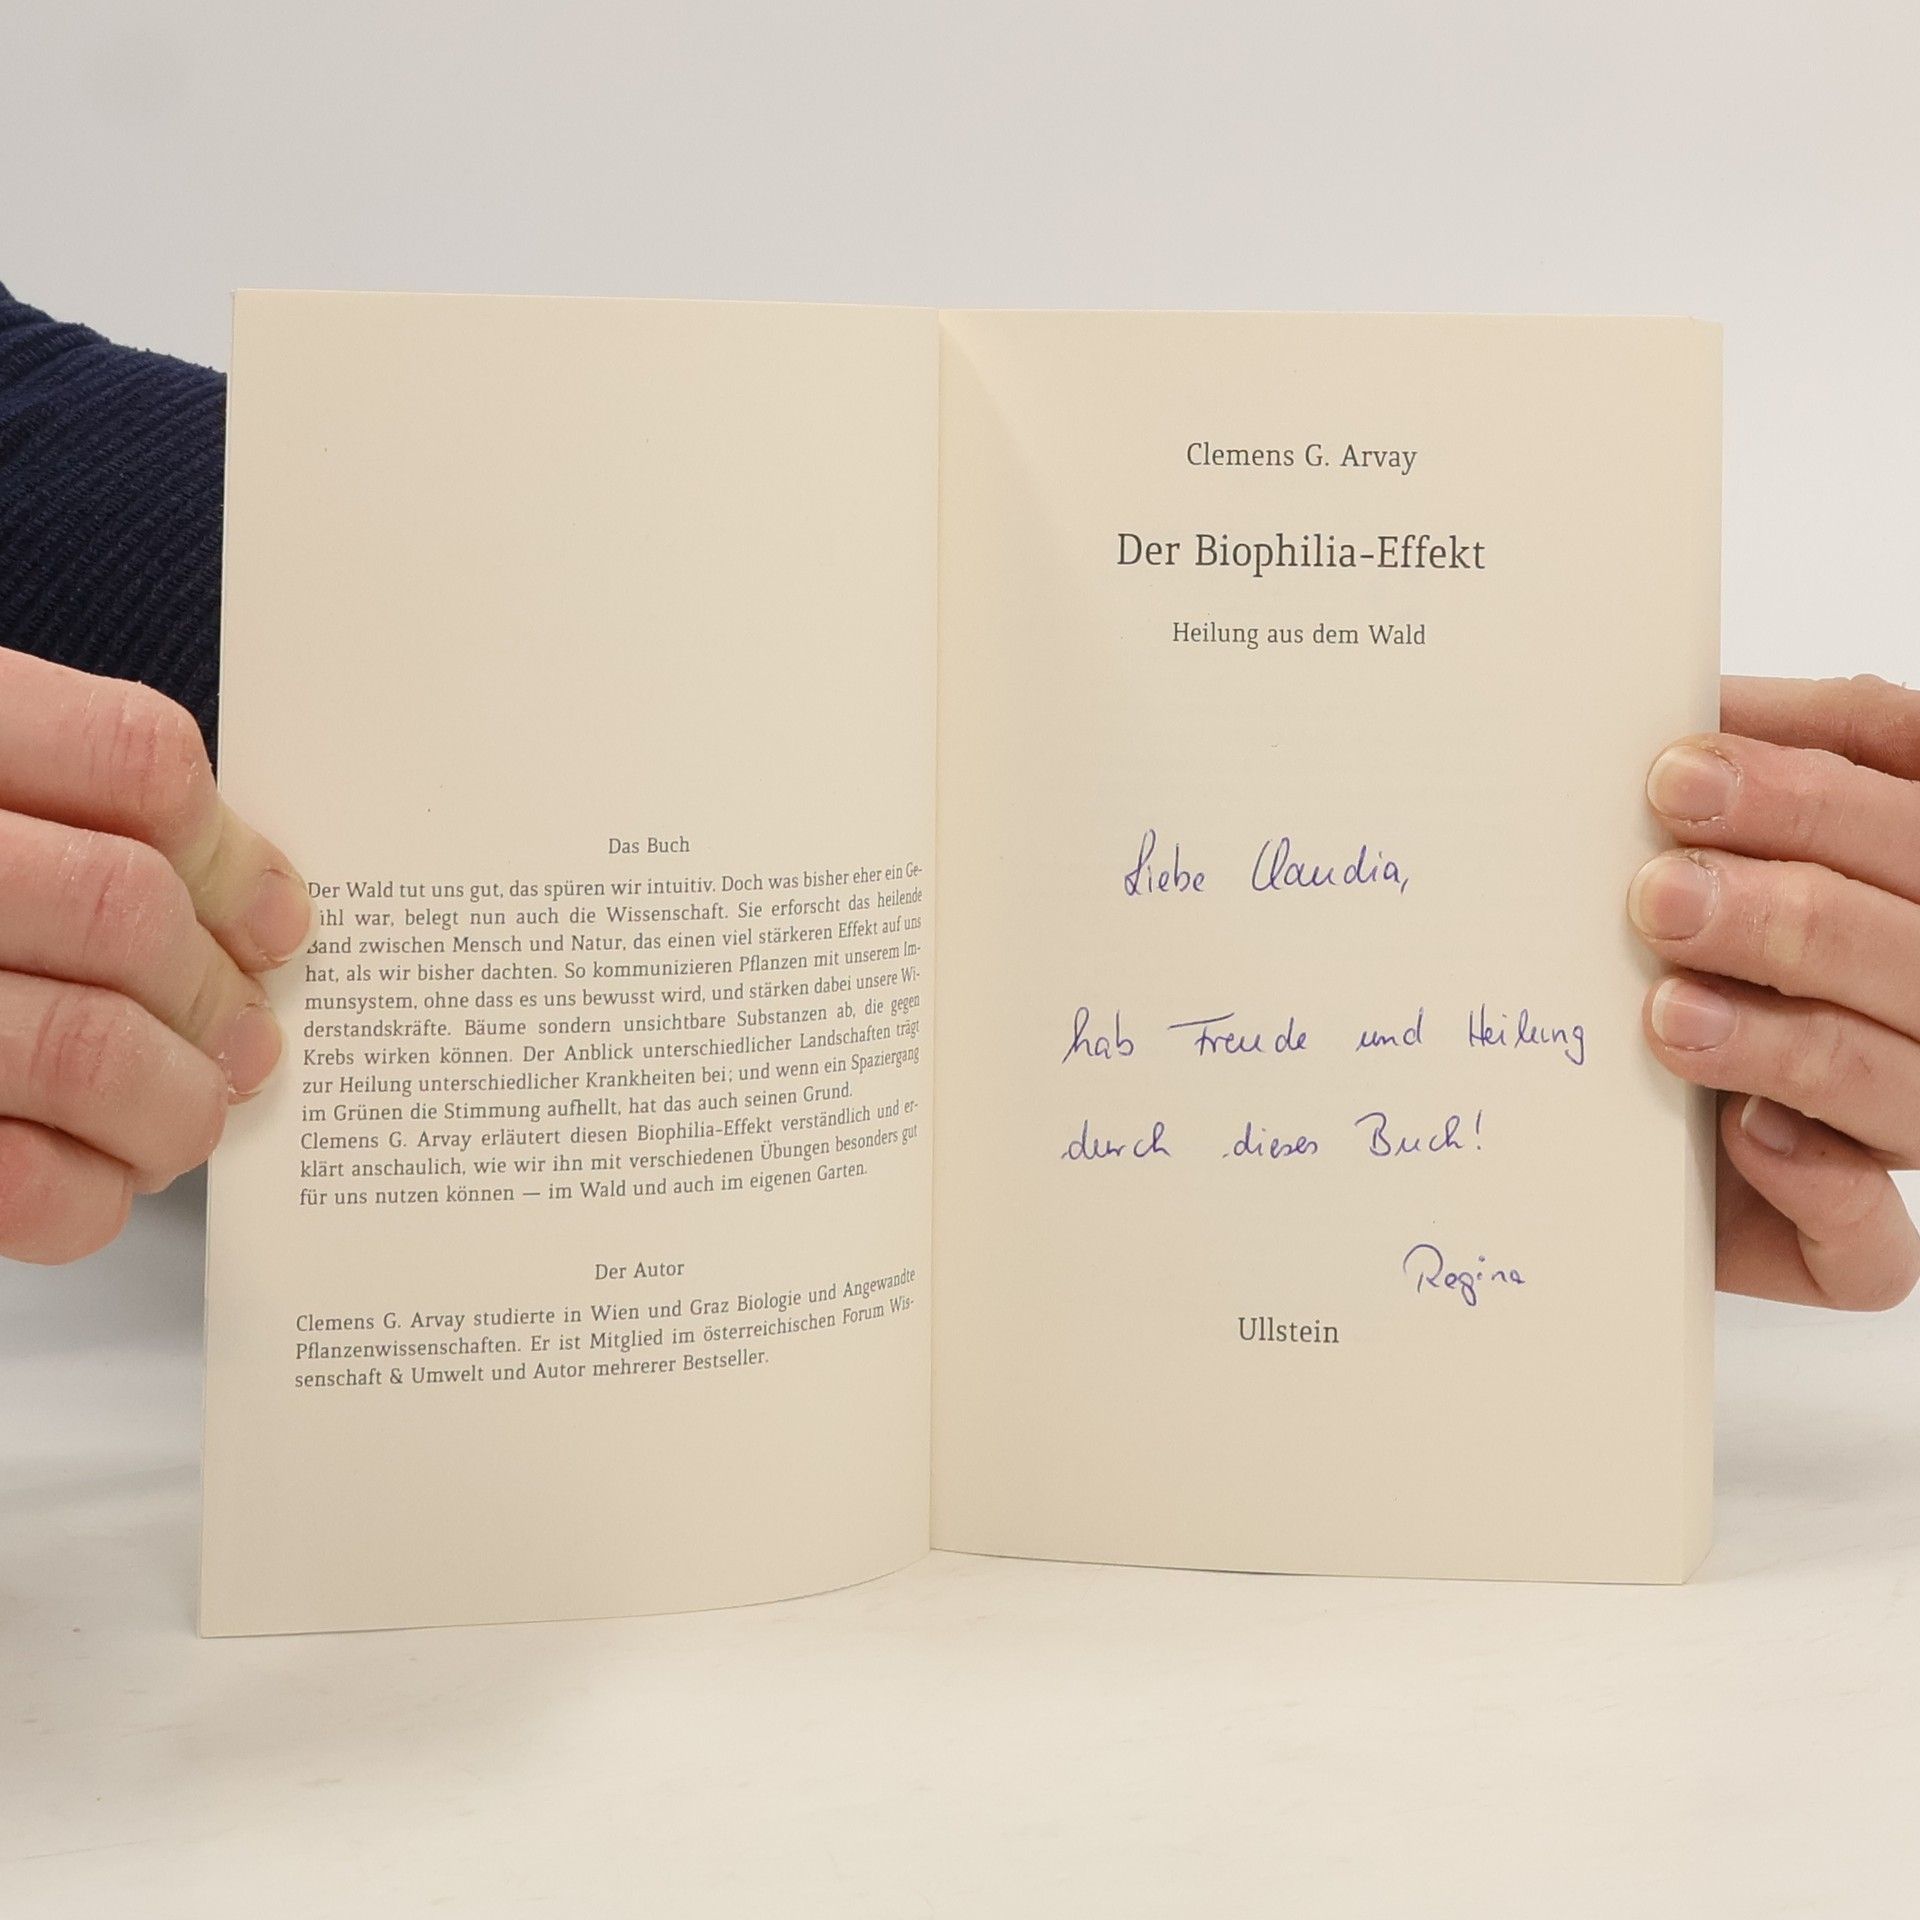 Das Buch
Der Wald tut uns gut, das spüren wir intuitiv. Doch was bisher eher ein Ge-
ihl war, belegt nun auch die Wissenschaft. Sie erforscht das heilende
Band zwischen Mensch und Natur, das einen viel stärkeren Effekt auf uns
hat, als wir bisher dachten. So kommunizieren Pflanzen mit unserem Im-
munsystem, ohne dass es uns bewusst wird, und stärken dabei unsere Wi-
derstandskräfte. Bäume sondern unsichtbare Substanzen ab, die gegen
Krebs wirken können. Der Anblick unterschiedlicher Landschaften trägt
zur Heilung unterschiedlicher Krankheiten bei; und wenn ein Spaziergang
im Grünen die Stimmung aufhellt, hat das auch seinen Grund.
Clemens G. Arvay erläutert diesen Biophilia-Effekt verständlich und er-
klärt anschaulich, wie wir ihn mit verschiedenen Übungen besonders gut
für uns nutzen können — im Wald und auch im eigenen Garten.
Der Autor
Clemens G. Arvay studierte in Wien und Graz Biologie und Angewandte
Pflanzenwissenschaften. Er ist Mitglied im österreichischen Forum Wis-
senschaft & Umwelt und Autor mehrerer Bestseller.
Clemens G. Arvay
Der Biophilia-Effekt
Heilung aus dem Wald
Liebe Claudia,
hab Freude und Heilung
durch dieses Buch!
Regina
Ullstein